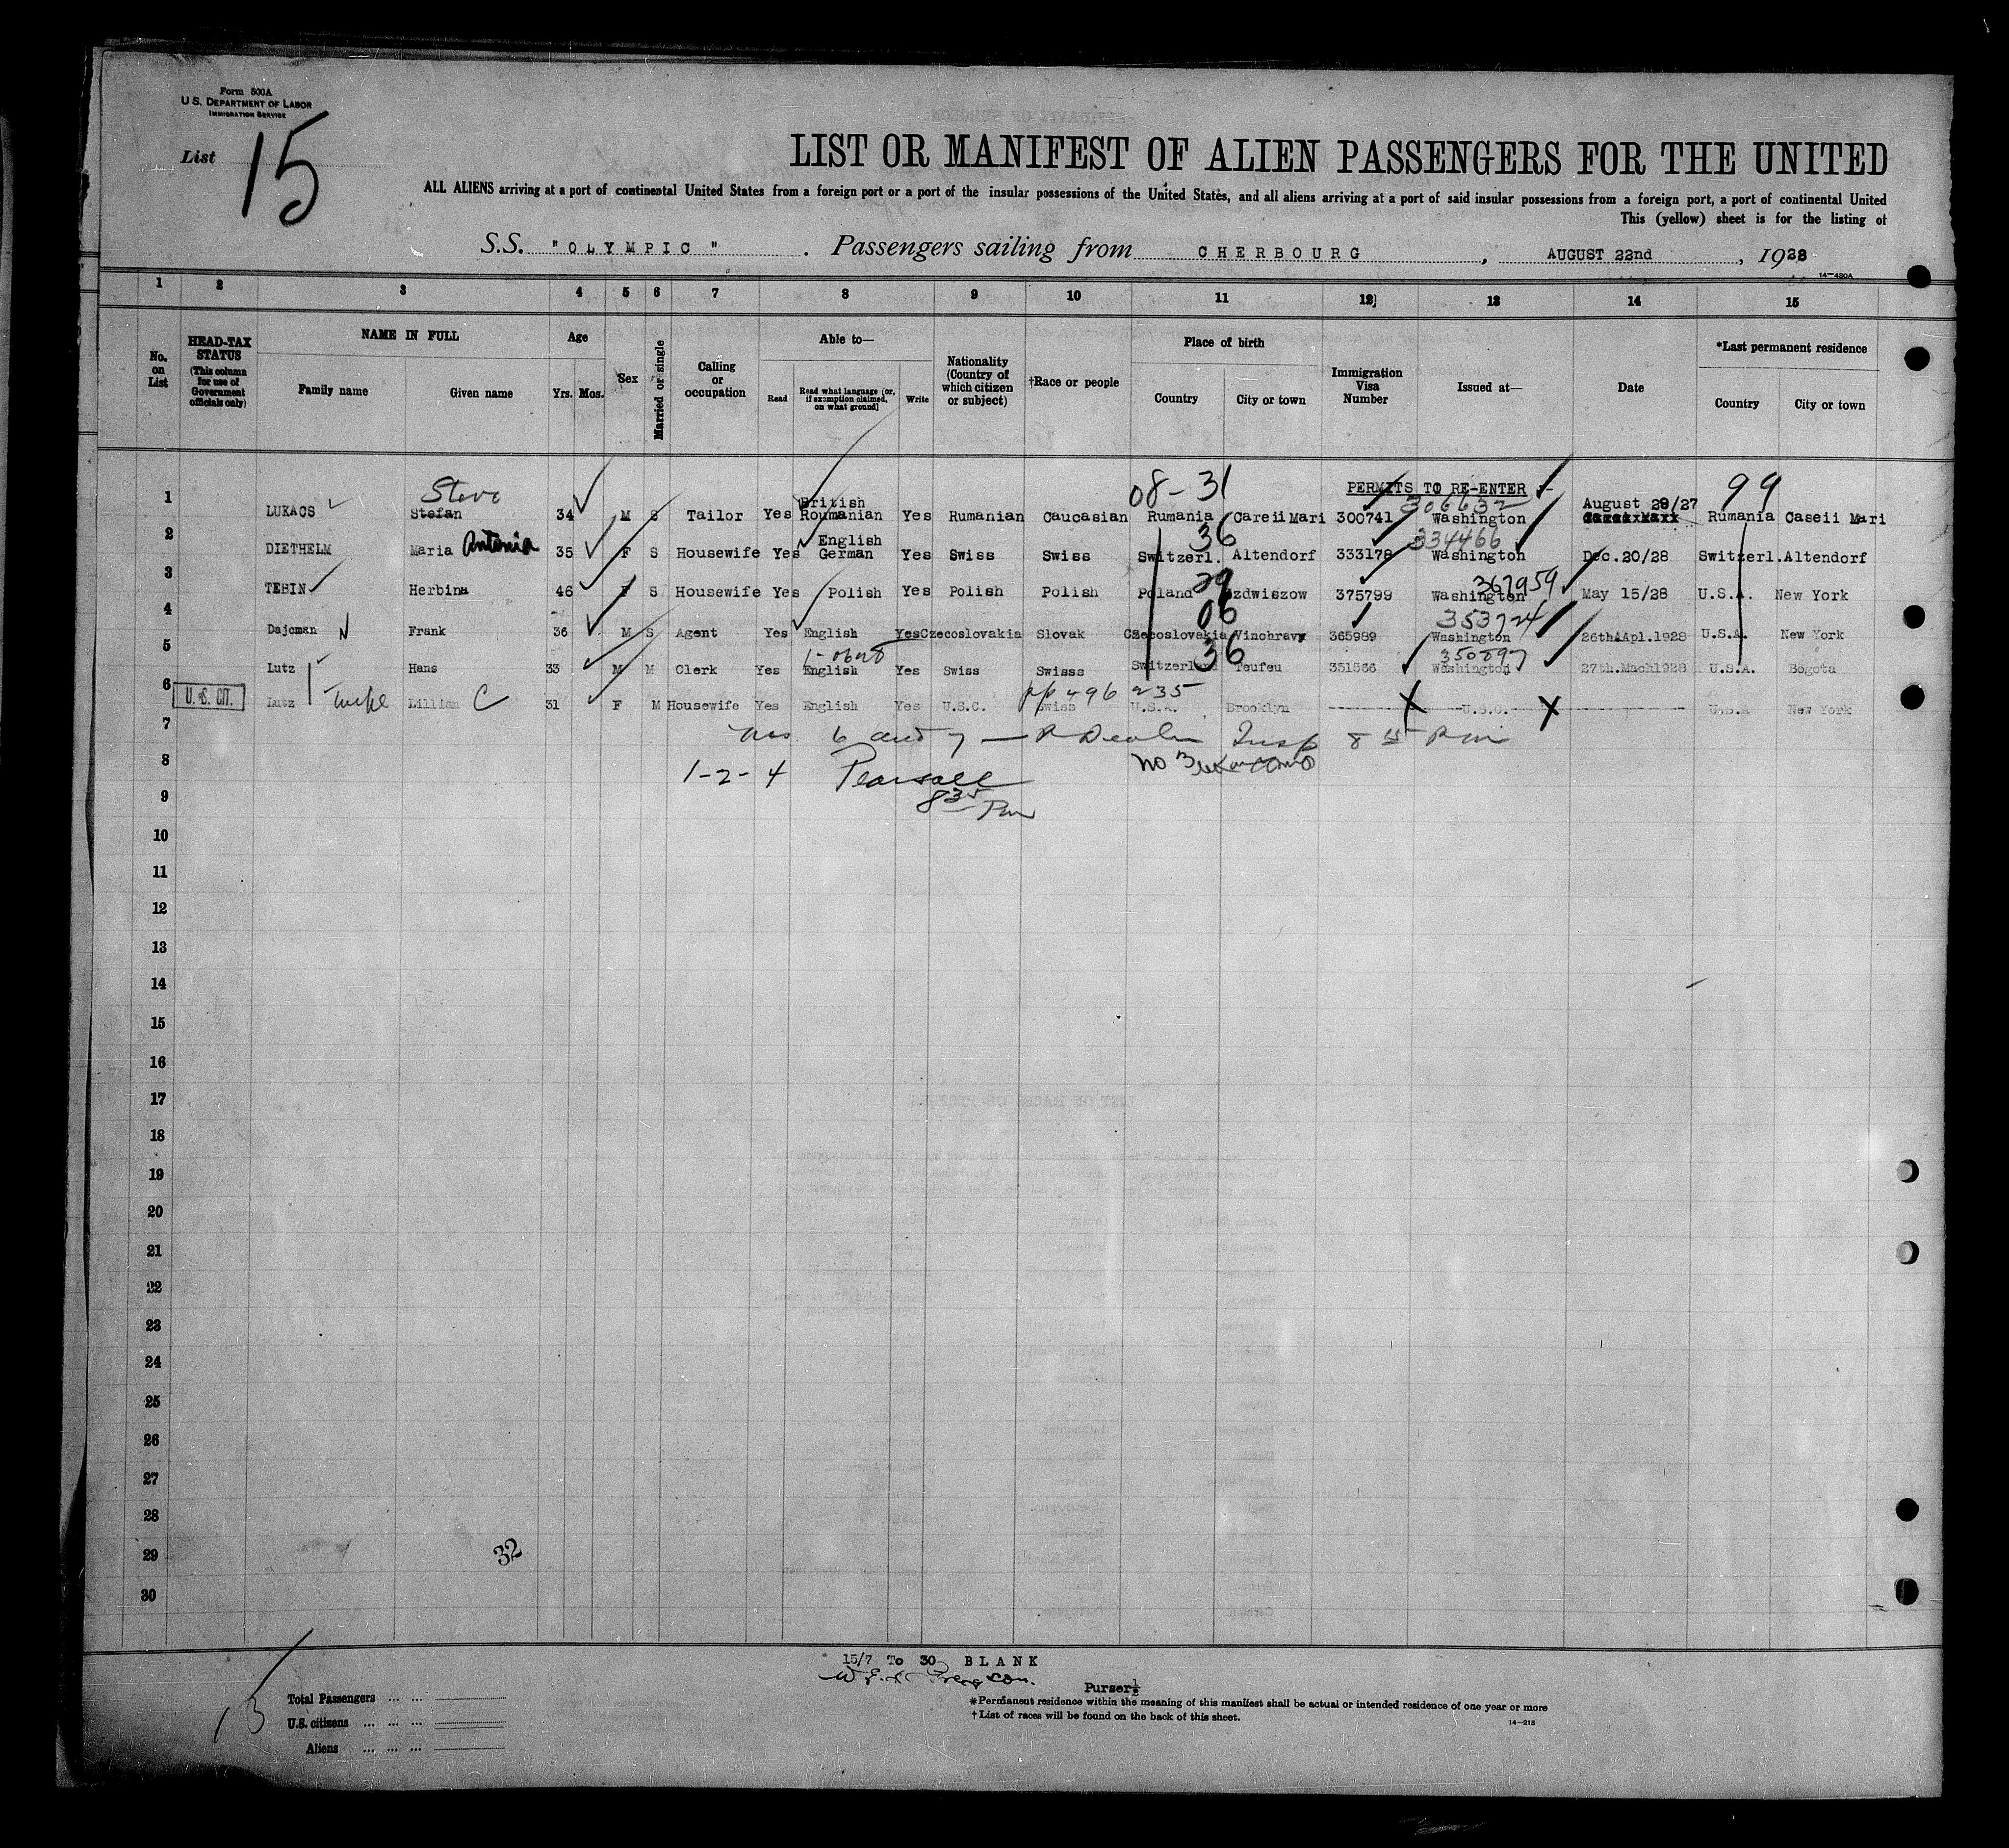 Form 500A
U.S. DEPARTMENT OF LABOR
IMMIGRATION SERVICE
List 15
LIST OR MANIFEST OF ALIEN PASSENGERS FOR THE UNITED
ALL ALIENS arriving at a port of continental United States from a foreign port or a port of the insular possessions of the United States, and all aliens arriving at a port of said insular possessions from a foreign port, a port of continental United
This (yellow) sheet is for the listing of
S.S. "OLYMPIC". Passengers sailing from CHERBOURG, AUGUST 22nd, 1928
14—430A
1 2 3 4 5 6 7 8 9 10 11 12 13 14 15
No. on List
HEAD-TAX STATUS (This column for use of Government officials only)
NAME IN FULL
Family name Given name
Age
Yrs. Mos.
Sex
Married or single
Calling or occupation
Able to—
Read Read what language [or, if exemption claimed, on what ground] Write
Nationality (Country of which citizen or subject)
†Race or people
Place of birth
Country City or town
Immigration Visa Number
Issued at—
Date
*Last permanent residence
Country City or town
Steve 08-31 PERMITS TO RE-ENTER :- 99
British 306632 August 29/27
1 LUKACS Stefan 34 M S Tailor Yes Roumanian Yes Rumanian Caucasian Rumania Careii Mari 300741 Washington Rumania Caseii Mari
English 36 334466
2 DIETHELM Maria Antonia 35 F S Housewife Yes German Yes Swiss Swiss Switzerl. Altendorf 333178 Washington Dec.20/28 Switzerl. Altendorf
29 367959
3 TEBIN Herbina 46 F S Housewife Yes Polish Yes Polish Polish Poland zdwiszow 375799 Washington May 15/28 U.S.A. New York
06 353724
4 Dajcman Frank 36 M S Agent Yes English Yes Czecoslovakia Slovak Czecoslovakia Vinohravy 365989 Washington 26th Apl.1928 U.S.A. New York
36 350897
5 Lutz Hans 33 M M Clerk Yes English Yes Swiss Swisss Switzerland Teufeu 351566 Washington 27th.Mach1928 U.S.A. Bogota
pp 496 235
6 U.S. CIT. Lutz Lillian C 31 F M Housewife Yes English Yes U.S.C. Swiss U.S.A. Brooklyn U.S.C. U.S.A New York
7 nos. 6 and 7 — Insp 8 15 Pm
8 1-2-4 Pearsall no 3
9 8 35 Pm
10
11
12
13
14
15
16
17
18
19
20
21
22
23
24
25
26
27
28
29 32
30
15/7 To 30 BLANK
Purser.
Total Passengers ... ...
U.S. citizens ... ... ...
Aliens ... ... ...
*Permanent residence within the meaning of this manifest shall be actual or intended residence of one year or more
†List of races will be found on the back of this sheet.
14—213